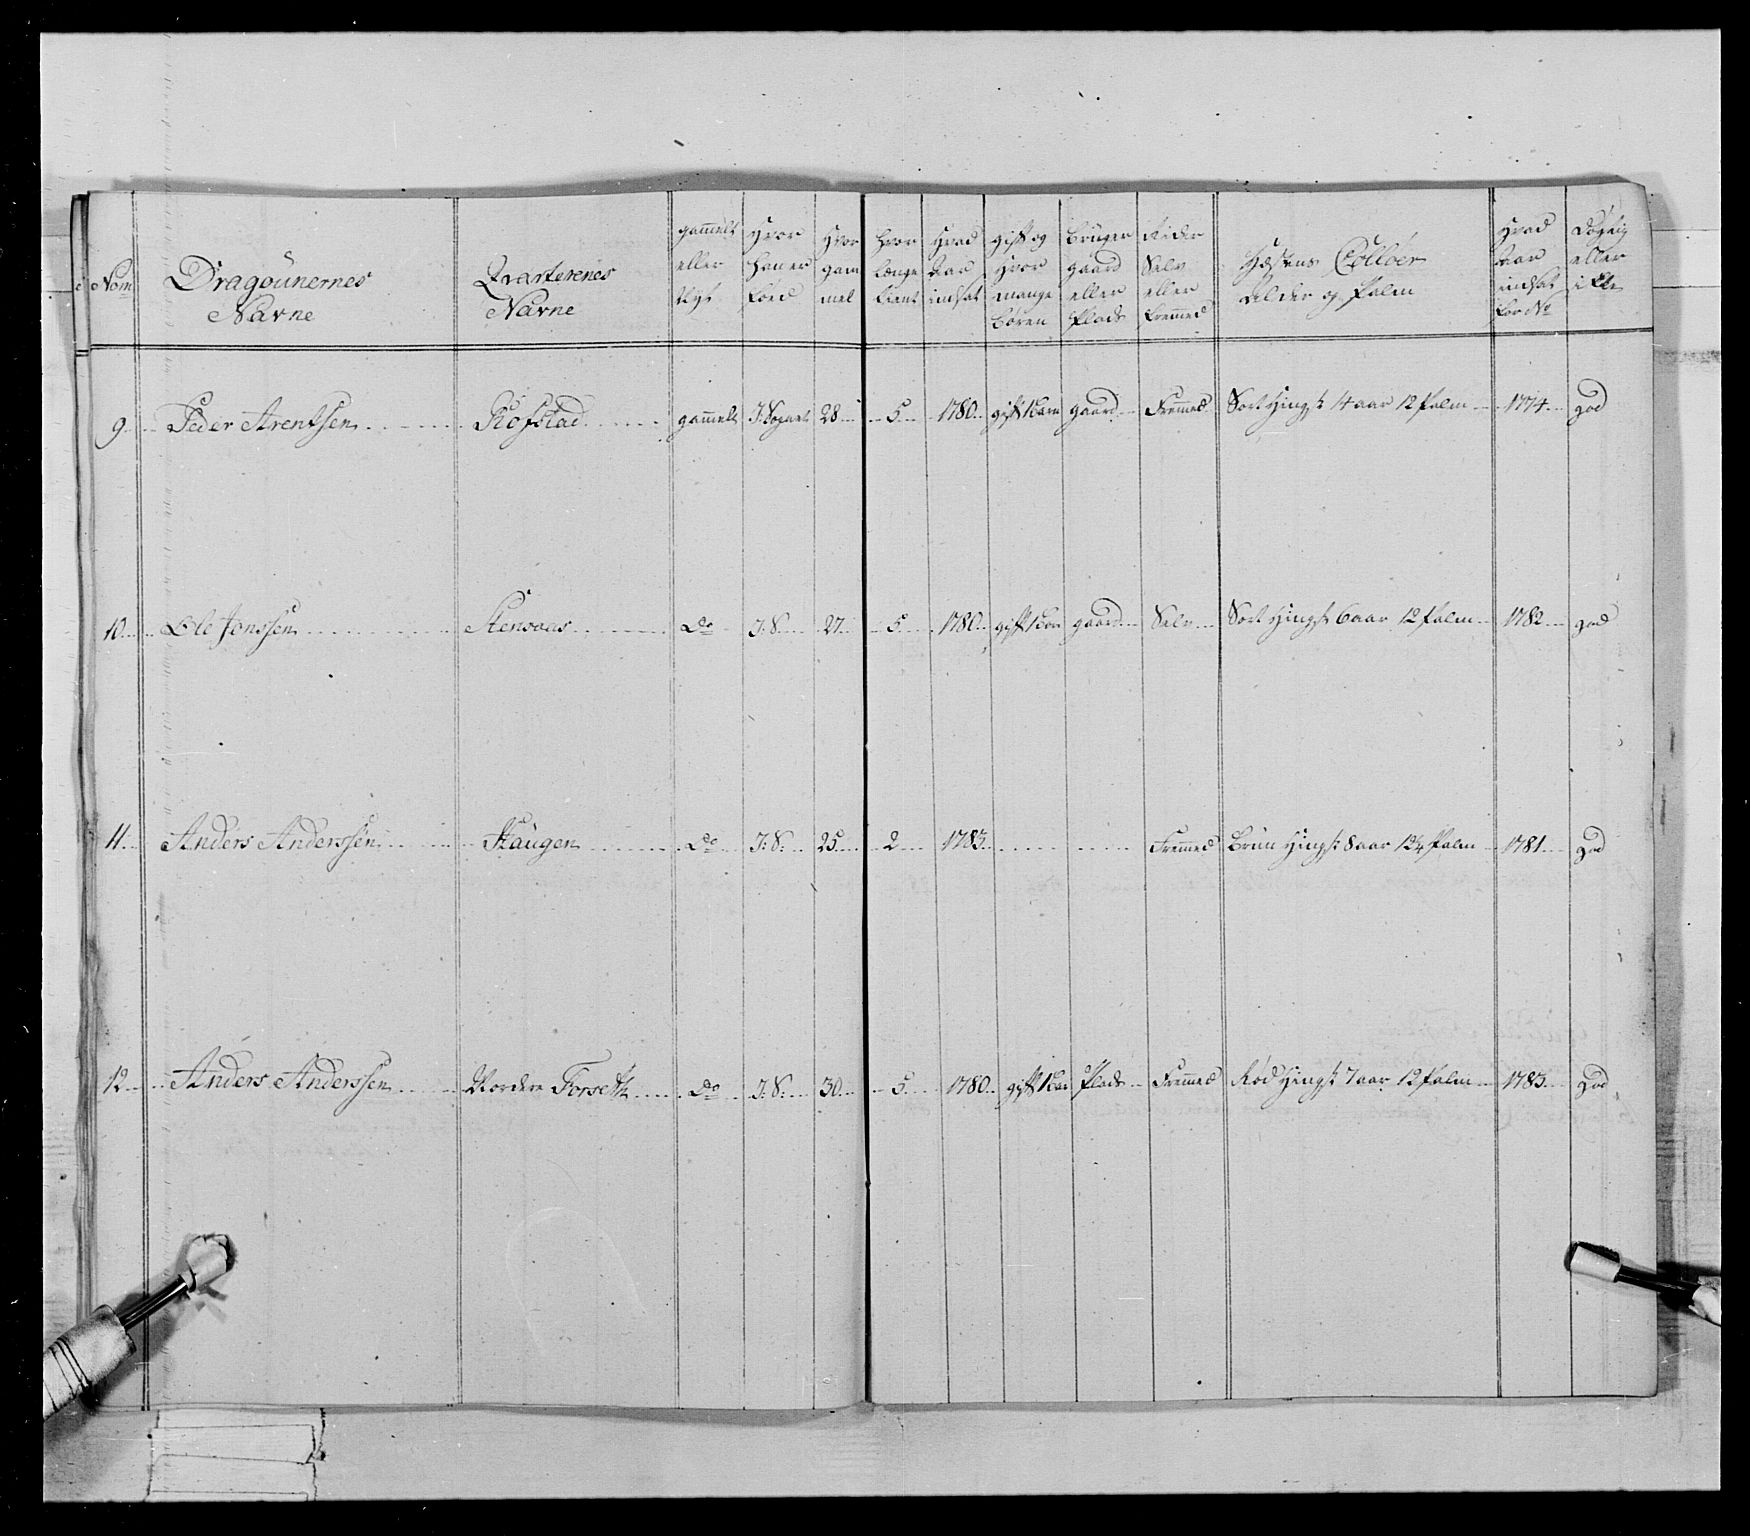 Nom
Dragounernes
Navne
Qvarterenes
Navne
gammelt
eller
Nyt
Hvor
han er
föed
Hvor
gam
mel
hvor
længe
tient
Hvad
Aar
indsat
gift og
hvor
mange
Bören
Bruger
gaard
eller
Plads
Rider
Selv
eller
fremmed
Hæstens Couloer
Alder og Palm
Hvad
Aar
indsat
for No
Dögtig
eller
ikke
9 Peder Arentsen Hofstad gammelt J: Sognet 28 5 1780 gift 1 Barn gaard Fremmed Sort Hingst 14 aar 12 Palm 1774 god
10 Ole Jonssen Stensaas Do J: S: 27 5 1780 gift 1 Bar gaard Selv Sort Hingst 6 aar 12 Palm 1782 god
11 Anders Anderssen Haugen Do J: S: 25 2 1783 Fremmed Brun Hingst 8 aar 12¼ Palm 1781 god
12 Anders Anderssen Nordre Forseth Do J: S: 30 5 1780 gift 1 Bar Plads Fremmed Röd Hingst 7 aar 12 Palm 1783 god